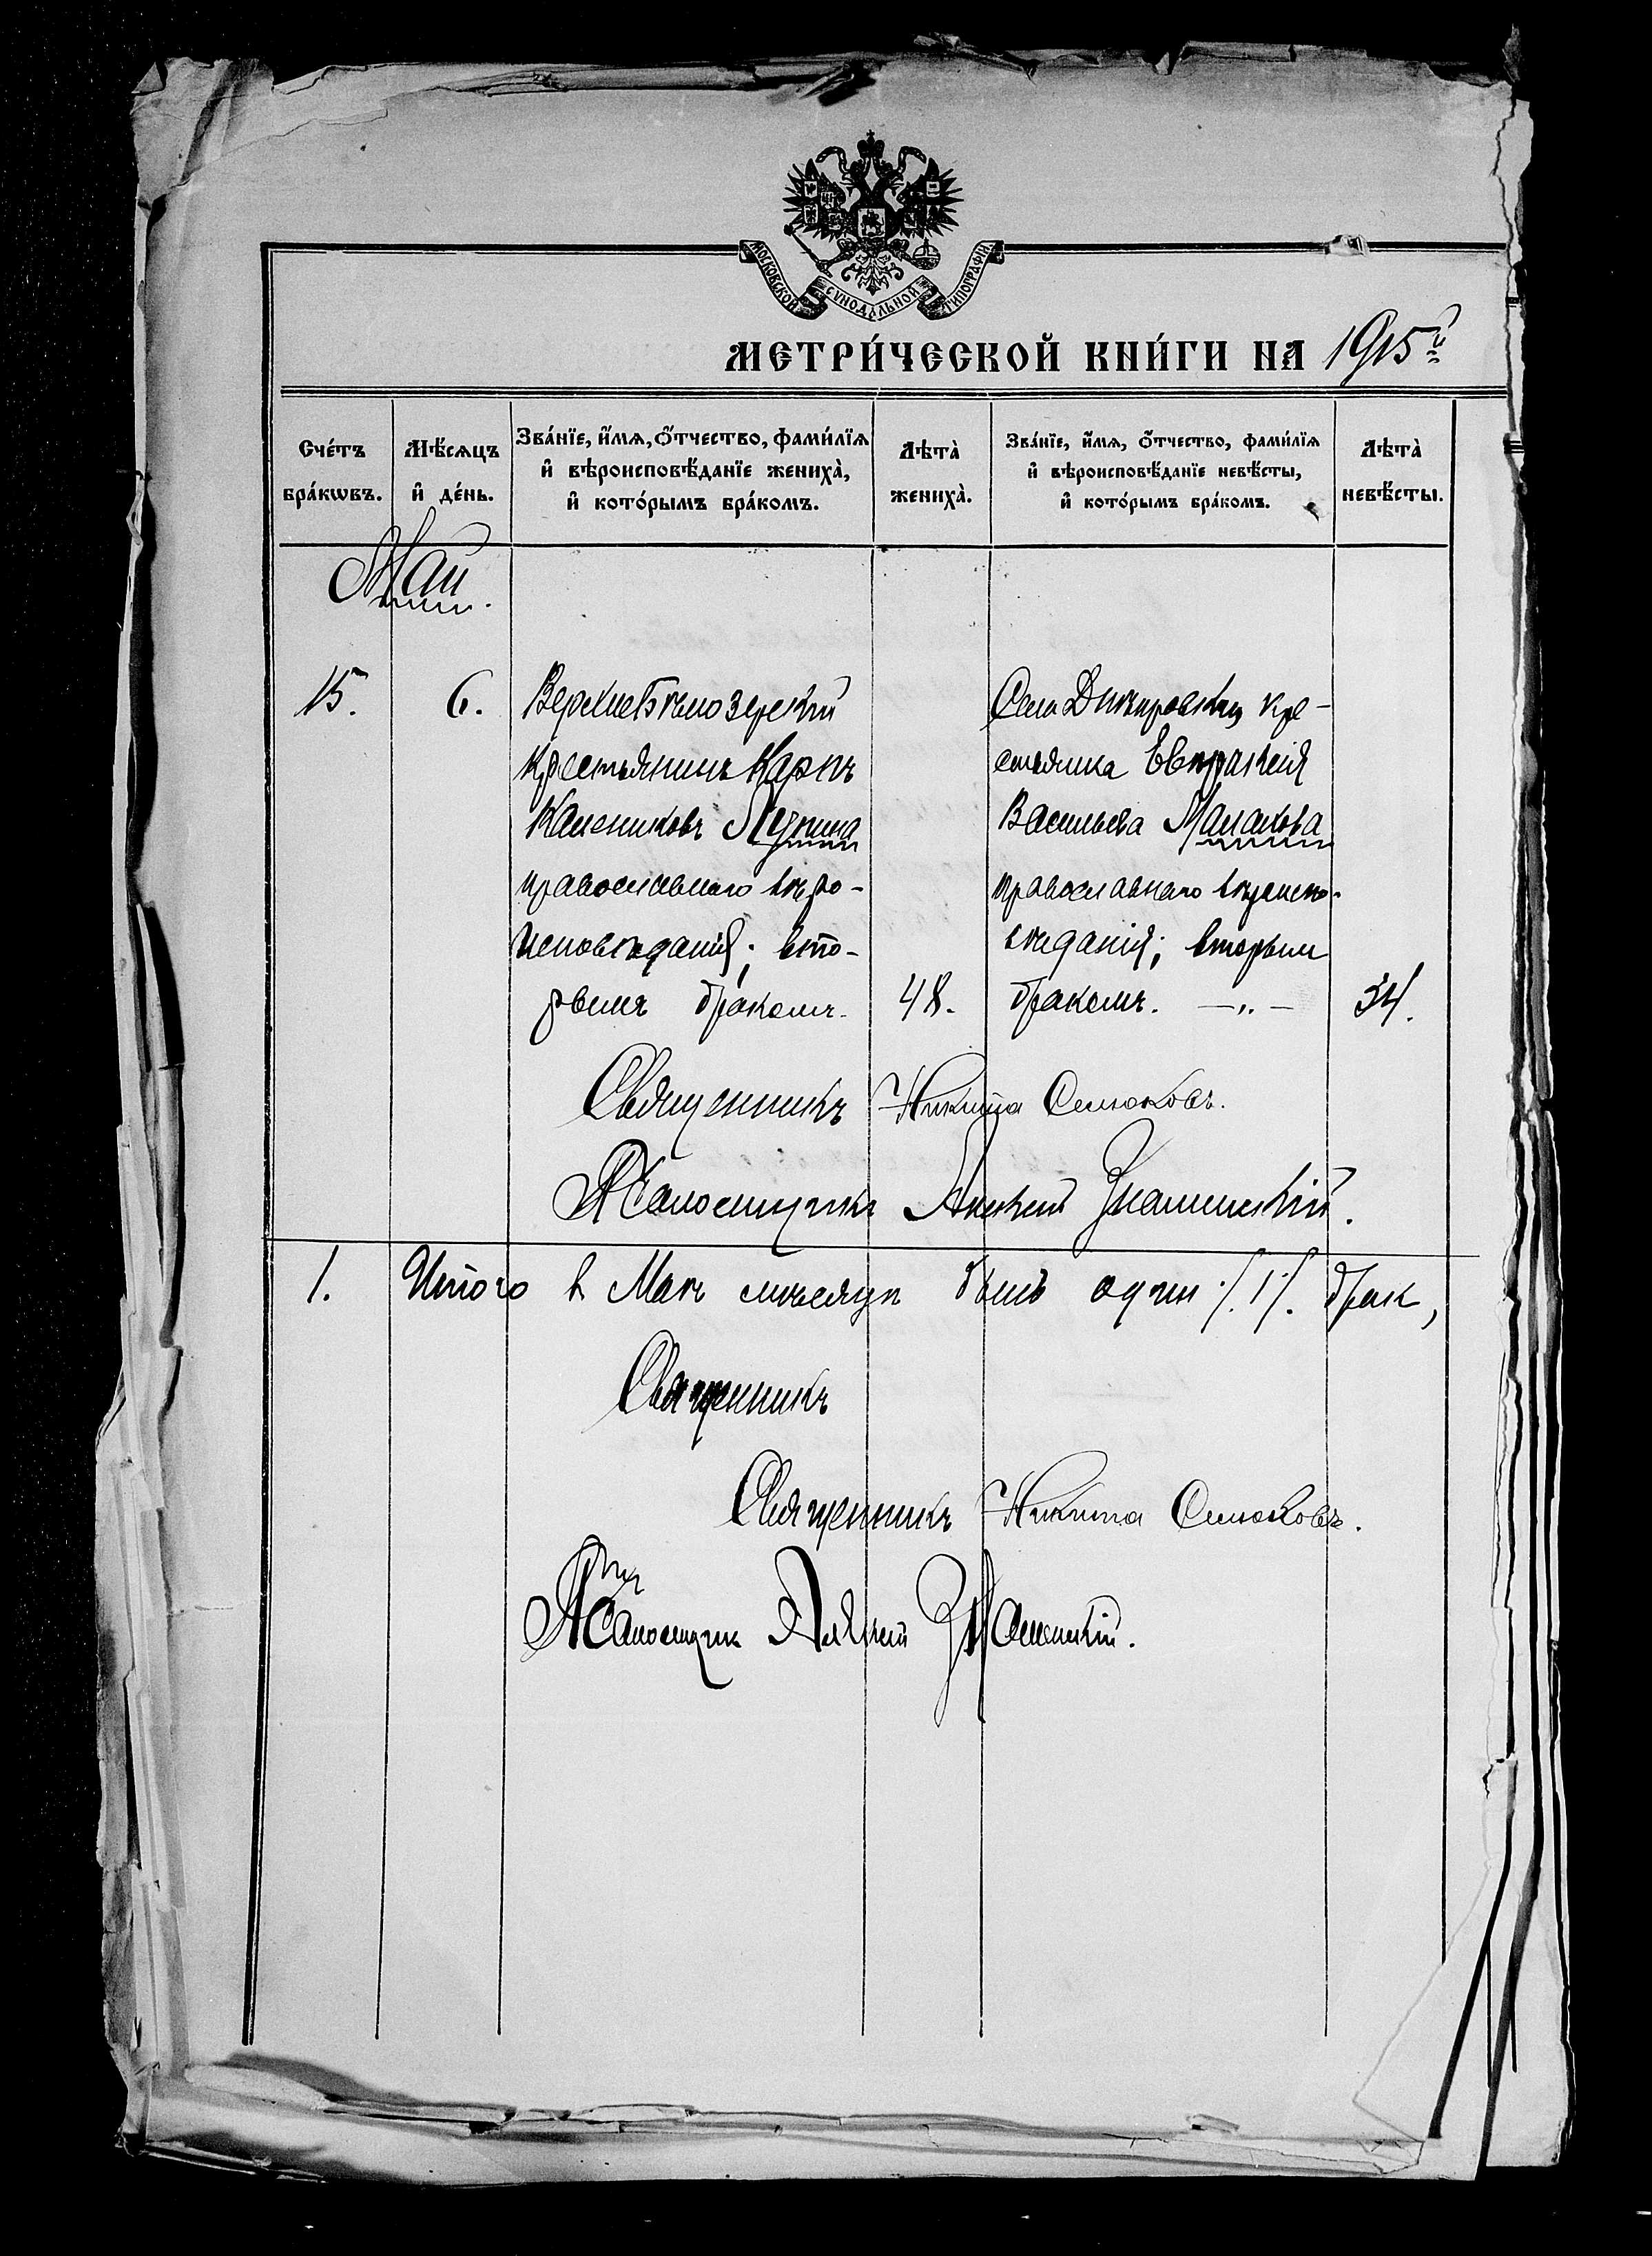 МОСКОВСКОЙ СѴНОДАЛЬНОЙ ТИПОГРАФІИ
МЕТРИ́ЧЕСКОЙ КНИ́ГИ НА 1915й
Сче́тъ бра́кѡвъ.
Мѣ́сѧцъ и҆ де́нь.
Зва́нїе, и҆́мѧ, ѻ҆́тчество, фами́лїѧ
и҆ вѣроисповѣ́данїе женихà,
и҆ кото́рымъ бра́комъ.
Лѣтà женихà.
Зва́нїе, и҆́мѧ, ѻ҆́тчество, фами́лїѧ
и҆ вѣроисповѣ́данїе невѣ́сты,
и҆ кото́рымъ бра́комъ.
Лѣтà невѣ́сты.
Май.
15.
6.
Верхнебѣлозерскій
крестьянинъ Карпъ
Калениковъ
православнаго вѣро-
исповѣданія; вто-
рымъ бракомъ.
48.
Села Днѣпровки, кре-
стьянка Евпраксія
Васильева Малахова
православнаго вѣроиспо-
вѣданія; вторымъ
бракомъ. —„—
34.
Священникъ Никита
Псаломщикъ Алексѣй Знаменскій.
1. Итого в Маѣ мѣсяцѣ былъ один /.1/. брак,
Священникъ
Священникъ Никита
Псаломщик Алексѣй Знаменскій.